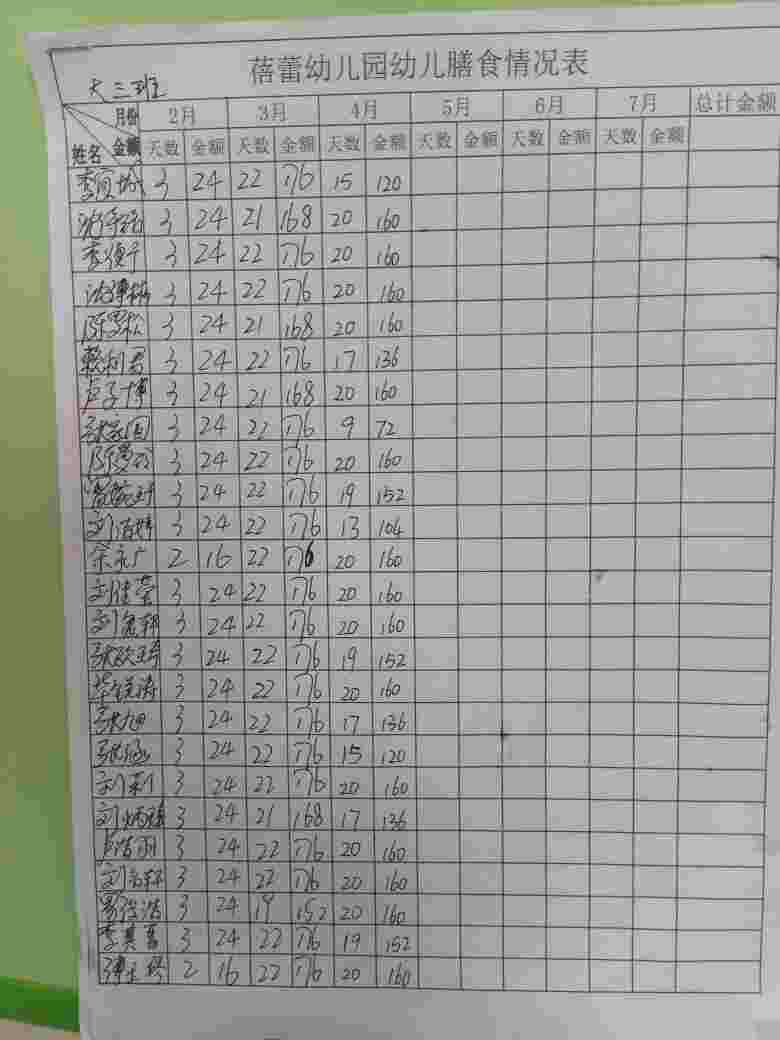 蓓蕾幼儿园幼儿膳食情况表
大三班
月份 2月 3月 4月 5月 6月 7月 总计金额
姓名 金额 天数 金额 天数 金额 天数 金额 天数 金额 天数 金额 天数 金额
李 3 24 22 176 15 120
沈 3 24 21 168 20 160
李 3 24 22 176 20 160
沈 3 24 22 176 20 160
陈 松 3 24 21 168 20 160
赖利君 3 24 22 176 17 136
卢子博 3 24 21 168 20 160
张 国 3 24 22 176 9 72
陈 3 24 22 176 20 160
3 24 22 176 19 152
刘 婷 3 24 22 176 13 104
余永广 2 16 22 176 20 160
刘佳莹 3 24 22 176 20 160
刘 翔 3 24 22 176 20 160
张欧 3 24 22 176 19 152
涛 3 24 22 176 20 160
张旭 3 24 22 176 17 136
张涵 3 24 22 176 15 120
刘 3 24 22 176 20 160
刘炳 3 24 21 168 17 136
卢浩羽 3 24 22 176 20 160
刘 轩 3 24 22 176 20 160
罗俊浩 3 24 19 152 20 160
李其 3 24 22 176 19 152
2 16 22 176 20 160